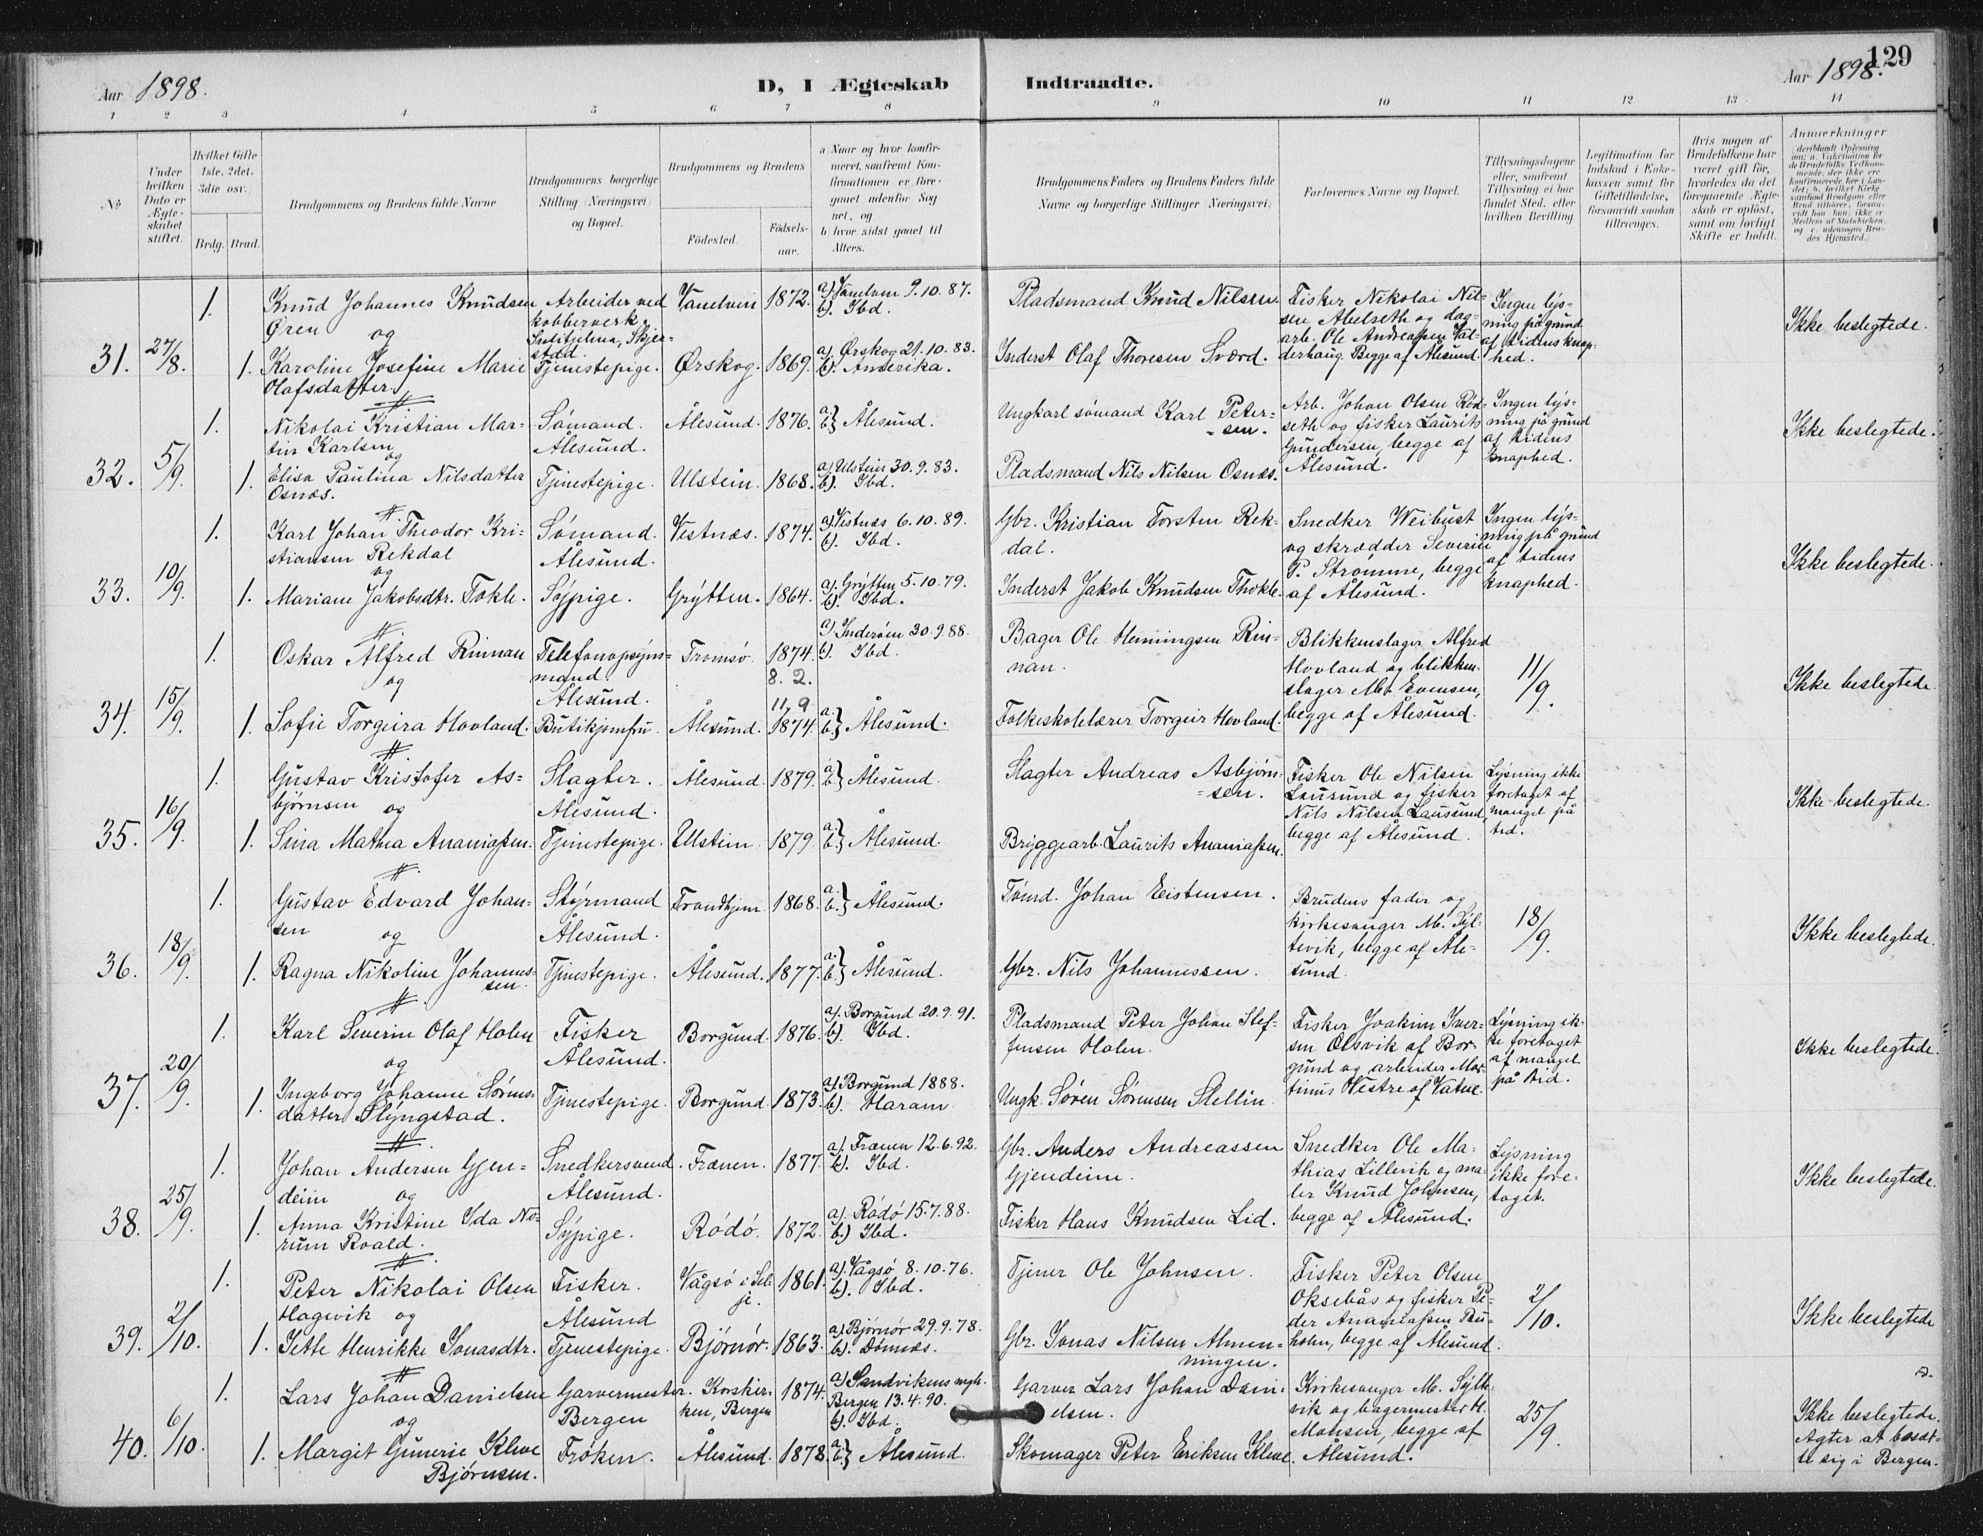 129
Aar 1898.
D, I Ægteskab Indtraadte.
Aar 1898.
1 2 3 4 5 6 7 8 9 10 11 12 13 14
№
Under hvilken Dato er Ægteskabet stiftet.
Hvilket Gifte 1ste, 2det, 3die osv.
Brdg. Brud.
Brudgommens og Brudens fulde Navne
Brudgommens borgerlige Stilling (Næringsvei) og Bopæl.
Brudgommens og Brudens
Fødested.
Fødsels-aar.
a Naar og hvor konfirmeret, saafremt Konfirmationen er foregaaet udenfor Sognet, og
b hvor sidst gaaet til Alters.
Brudgommens Faders og Brudens Faders fulde Navne og borgerlige Stillinger (Næringsvei)
Forlovernes Navne og Bopæl.
Tillysningsdagene eller, saafremt Tillysning ei har fundet Sted, efter hvilken Bevilling.
Legitimation for Indskud i Enkekassen samt for Giftetilladelse, forsaavidt saadan tiltrænges.
Hvis nogen af Brudefolkene har været gift før, hvorledes da det foregaaende Ægteskab er opløst, samt om lovligt Skifte er holdt.
Anmærkninger
31. 27/8. 1. Knud Johannes Knudsen Øren og
Arbeider ved kobberverk,
Vanelven 1872. a). Vanelven 9.10.87. b). Ibd.
Pladsmand Knud Nilsen.
Fisker Nikolai Nilsen Abelseth og dagarb. Ole Andreassen Valderhaug. Begge af Ålesund.
Ingen lysning på grund af tidens knaphed.
Ikke beslegtede.
1. Karoline Josefine Marie Olafsdatter.
Tjenestepige. Ørskog. 1869. a). Ørskog 21.10.83. b). Amerika.
Inderst Olaf Thoresen Sværd.
32. 5/9. 1. Nikolai Kristian Martin Karlsen og
Sømand. Ålesund.
Ålesund. 1876. a. b.} Ålesund.
Ungkarl sømand Karl Petersen.
Arb. Johan Olsen Rødseth og fisker Laurits Gundersen, begge af Ålesund.
Ingen lysning på grund af tidens knaphed.
Ikke beslegtede.
1. Elisa Paulina Nilsdatter Osnæs.
Tjenestepige. Ulstein. 1868. a) Ulstein 30.9.83. b). Ibd.
Pladsmand Nils Nilsen Osnæs.
33. 10/9. 1. Karl Johan Theodor Kristiansen Rekdal og
Sømand. Ålesund.
Vestnæs. 1874. a) Vestnæs 6.10.89. b). Ibd.
Gbr. Kristian Torsten Rekdal.
Snedker Weibust og skrædder Severin P. Strømme, begge af Ålesund.
Ingen lysning på grund af tidens knaphed.
Ikke beslegtede.
1. Mariane Jakobsdtr. Tokle.
Sypige. Grytten. 1864. a). Grytten 5.10.79. b). Ibd.
Inderst Jakob Knudsen Thokle.
34. 15/9. 1. Oskar Alfred Rinnan og
Telefonopsynsmand Ålesund.
Tromsø. 1874. 8. 2. a) Inderøen 30.9.88. b). Ibd.
Bager Ole Henningsen Rinnan.
Blikkenslager Alfred Hovland og blikkenslager M. Evensen, begge af Ålesund.
11/9.
Ikke beslegtede.
1. Sofie Torgeira Hovland.
Butikjomfru. Ålesund. 11, 9 1874. a. b.} Ålesund.
Folkeskolelærer Torgeir Hovland.
35. 16/9. 1. Gustav Kristofer Asbjørnsen og
Slagter. Ålesund.
Ålesund. 1879. a. b.} Ålesund.
Slagter Andreas Asbjørnsen.
Fisker Ole Nilsen Laursund og fisker Nils Nilsen Laursund, begge af Ålesund.
Lysning ikke foretaget af mangel på tid.
Ikke beslegtede.
1. Sina Mathea Ananiassen.
Tjenestepige. Ulstein 1879. a. b.} Ålesund.
Bryggearb. Laurits Ananiassen.
36. 18/9. 1. Gustav Edvard Johansen og
Styrmand Ålesund.
Trondhjem 1868. a. b.} Ålesund.
Tømd. Johan Eistensen.
Brudens fader og kirkesanger M. Syltevik, begge af Ålesund.
18/9.
Ikke beslegtede.
1. Ragna Nikoline Johannessen.
Tjenestepige. Ålesund. 1877. a. b.} Ålesund.
Gbr. Nils Johannessen.
37. 20/9. 1. Karl Severin Olaf Holen og
Fisker Ålesund.
Borgund. 1876. a). Borgund 20.9.91. b). Ibd.
Pladsmand Peter Johan Steffensen Holen.
Fisker Joakim Iversen Olsvik af Borgund og arbeider Martinus Westre af Vatne.
Lysning ikke foretaget af mangel på tid.
Ikke beslegtede.
1. Ingeborg Johanne Sørensdatter Slyngstad.
Tjenestepige. Borgund. 1873. a). Borgund 1888. b). Haram.
Ungk. Søren Sørensen Stellin.
38. 25/9. 1. Johan Andersen Gjendeim og
Snedkersvend. Ålesund.
Frænen. 1877. a). Frænen 12.6.92. b). Ibd.
Gbr. Anders Andreassen Gjendeim.
Snedker Ole Mathias Lillevik og maler Knud Johnsen, begge af Ålesund.
Lysning ikke foretaget.
Ikke beslegtede.
1. Anna Kristine Ida Norum Roald.
Sypige. Rødø. 1872. a). Rødø 15.7.88. b.) Ibd.
Fisker Hans Knudsen Lid.
39. 2/10. 1. Peter Nikolai Olsen Hagevik og
Fisker. Ålesund
Vågsø i Selje. 1861. a). Vågsø 8.10.76. b). Ibd.
Tjener Ole Johnsen.
Fisker Peter Olsen Oksebås og fisker Peder Ananiassen, begge af Ålesund.
2/10.
Ikke beslegtede
1. Jette Henrikke Jonasdtr.
Tjenestepige. Bjørnør. 1863. a). Bjørnør 29.9.78. b).
Gbr. Jonas Nilsen Almenningen.
40. 6/10. 1. Lars Johan Danielsen og
Garvermester. Bergen
Korskirken, Bergen 1874. a) Sandvikens mgh. Bergen 13.4.90. b). Ibd.
Garver Lars Johan Danielsen.
Kirkesanger M. Syltevik og bagermester H. Monsen, begge af Ålesund.
25/9.
Ikke beslegtede. Agter at bosætte sig i Bergen.
1. Margit Gunerie Kleve Bjørnsen.
Frøken. Ålesund. 1878. a. b.} Ålesund.
Skomager Peter Eriksen Kleve.